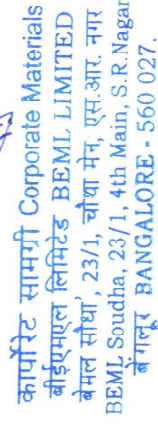 कार्पोरेट सामग्री Corporate Materials
बीईएमएल लिमिटेड BEML LIMITED
बेमल सौधा', 23/1, चौथा मेन, एस.आर. नगर
BEML Soudha, 23/1, 4th Main, S.R.Nagar
बेंगलूर BANGALORE - 560 027.